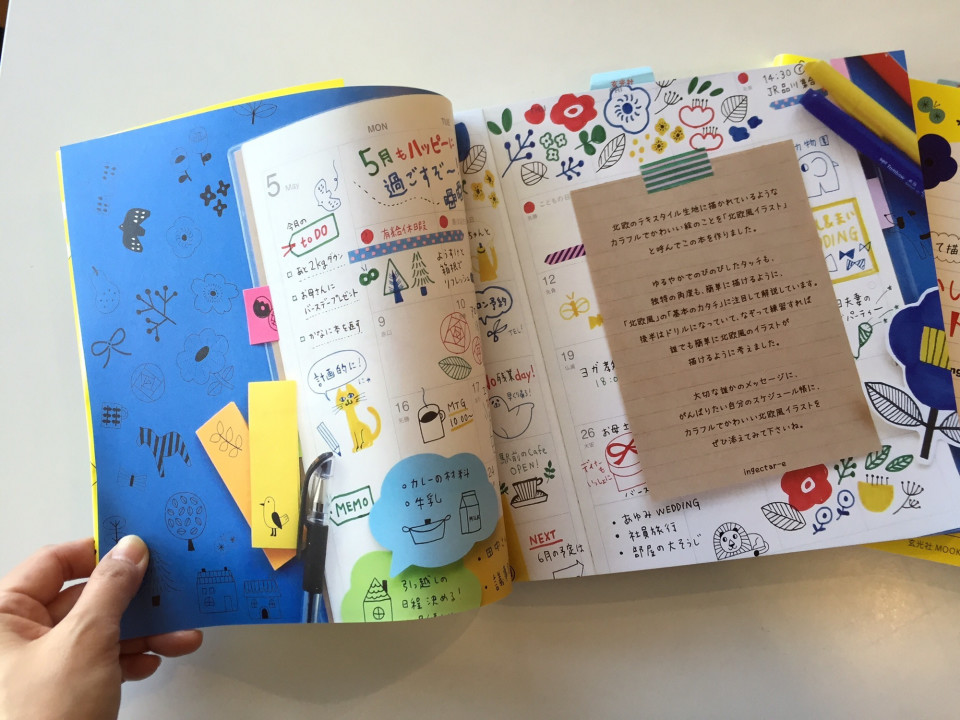 MON
5 May
5月もハッピーに
過ごすぞ〜
今月の
to DO
□ あと2kgダウン
□ お母さんに
バースデープレゼント
□ かなに本を返す
計画的に!
にゃ
有給休暇
ようすけと
箱根で
リフレッシュ
9
10
16
17
MTG
10:00〜
MEMO
・カレーの材料
・牛乳
MILK
引っ越しの
日程決める!
24
残業day!
駅前のCafe
OPEN!
NEXT
6月の予定は
玄光社
14:30
JR品川
12
19
ヨガ
26
お母
・あゆみ WEDDING
・社員旅行
・部屋の大そうじ
動物園
北欧のテキスタイル生地に描かれているような
カラフルでかわいい絵のことを「北欧風イラスト」
と呼んでこの本を作りました。
ゆるやかでのびのびしたタッチも、
独特の角度も、簡単に描けるように、
「北欧風」の「基本のカタチ」に注目して解説しています。
後半はドリルになっていて、なぞって練習すれば
誰でも簡単に北欧風のイラストが
描けるように考えました。
大切な誰かのメッセージに、
がんばりたい自分のスケジュール帳に、
カラフルでかわいい北欧風イラストを
ぜひ添えてみて下さいね。
ingectar-e
夫妻の
パーティー
玄光社 MOOK